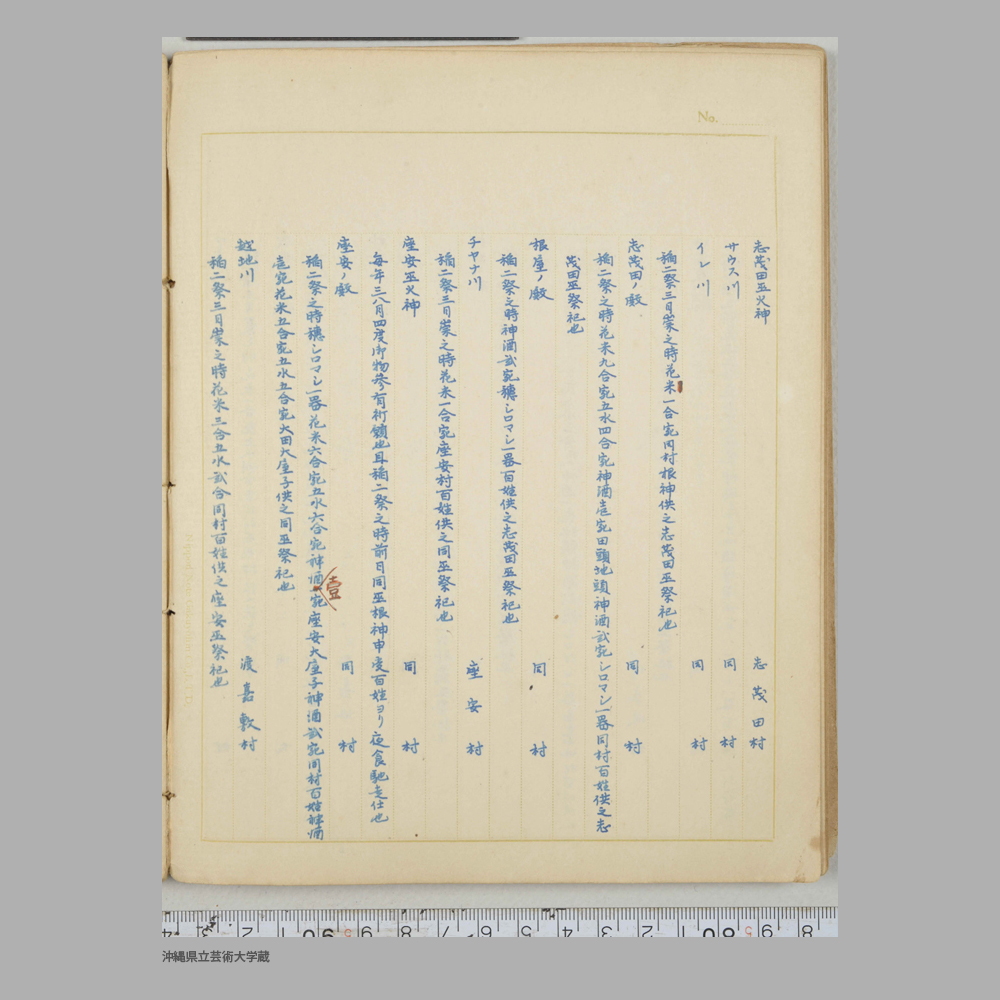 No.
志茂田巫火神 志茂田村
サウス川 同 村
イレ川 同 村
稲二祭三日崇之時花米一合宛同村根神供之志茂田巫祭祀也
志茂田ノ殿 同 村
稲二祭之時花米九合宛五水四合宛神酒壱宛田頭地頭神酒弐宛シロマシ一器同村百姓供之志
茂田巫祭祀也
根屋ノ殿 同 村
稲二祭之時神酒弐宛穂シロマシ一器百姓供之志茂田巫祭祀也
チヤナ川 座安村
稲二祭三日崇之時花米一合宛座安村百姓供之同巫祭祀也
座安巫火神 同 村
毎年三八月四度御物参有祈願也且稲二祭之時前日同巫根神申受百姓ヨリ夜食馳走仕也
座安ノ殿 同 村
稲二祭之時穂シロマシ一器花米六合宛五水六合宛神酒壹宛座安大屋子神酒弐宛同村百姓神酒
壱宛花米五合宛五水五合宛大田大屋子供之同巫祭祀也
越地川 渡嘉敷村
稲二祭三日崇之時花米三合五水弐合同村百姓供之座安巫祭祀也
沖縄県立芸術大学蔵